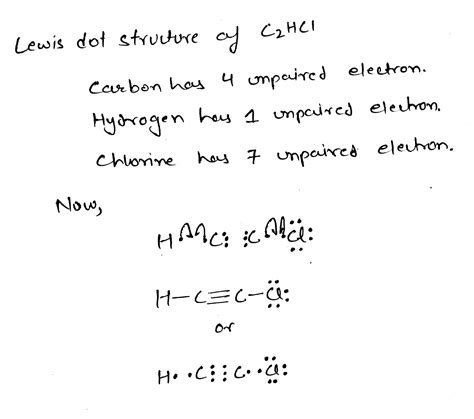 Lewis dot struture of C₂HCl
Carbon has 4 unpaired electron.
Hydrogen has 1 unpaired electron.
Chlorine has 7 unpaired electron.
Now,
H C: :C Cl:
H-C≡C-Cl:
or
H••C⋮⋮C••Cl: